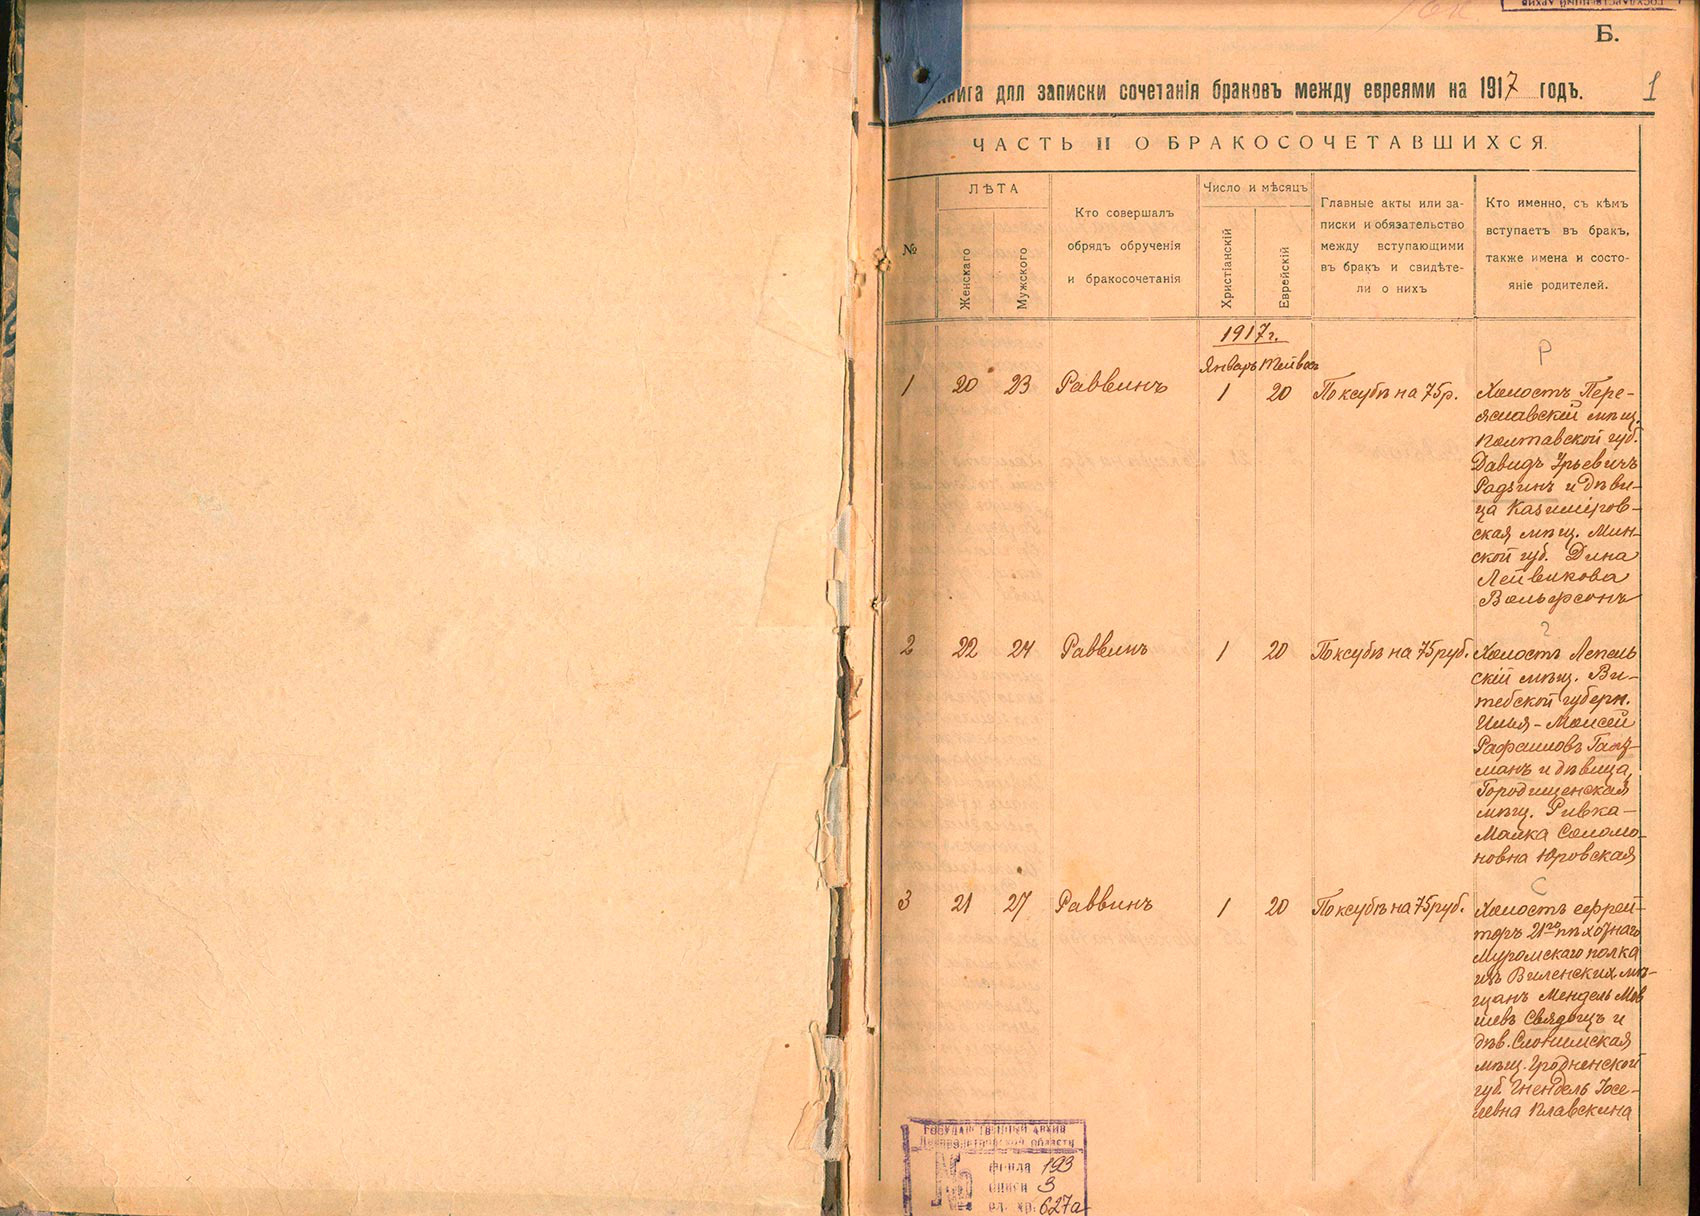 Б.
книга для записки сочетанія браковъ между евреями на 1917 годъ.
1
ЧАСТЬ II О БРАКОСОЧЕТАВШИХСЯ.
№
ЛѢТА
Женскаго
Мужского
Кто совершалъ
обрядъ обрученія
и бракосочетанія
Число и мѣсяцъ
Христіанскій
Еврейскій
Главные акты или за-
писки и обязательство
между вступающими
въ бракъ и свидѣте-
ли о нихъ
Кто именно, съ кѣмъ
вступаетъ въ бракъ,
также имена и состо-
яніе родителей.
1917 г.
Январь Тейвесъ
Р
1 20 23 Раввинъ 1 20 По ксубѣ на 75 р.
Холостъ Пере-
яславскій мѣщ.
Полтавской губ.
Давидъ Урьевичъ
Радзинъ и дѣви-
ца Казиміров-
ская мѣщ. Мин-
ской губ. Дина
Лейвикова
Вольфсонъ
2 22 24 Раввинъ 1 20 По ксубѣ на 75 руб.
Холостъ Лепель
скій мѣщ. Ви-
тебской губерн.
Илья-Моисей
Рафаиловъ Гольц-
манъ и дѣвица,
Городищенская
мѣщ. Ривка-
Малка Соломо-
новна Юровская
С
3 21 27 Раввинъ 1 20 По ксубѣ на 75 руб.
Холостъ ефрей-
торъ 21го пѣхотнаго
Муромскаго полка
изъ Виленскихъ мѣ-
щанъ Мендель Мов
шевъ Свядощъ и
дѣв. Слонимская
мѣщ. Гродненской
губ. Гнендель Іосе-
левна Плавскина
ГОСУДАРСТВЕННЫЙ АРХИВ
Днепропетровской области
№
фонда 193
описи 3
ед. хр. 627а